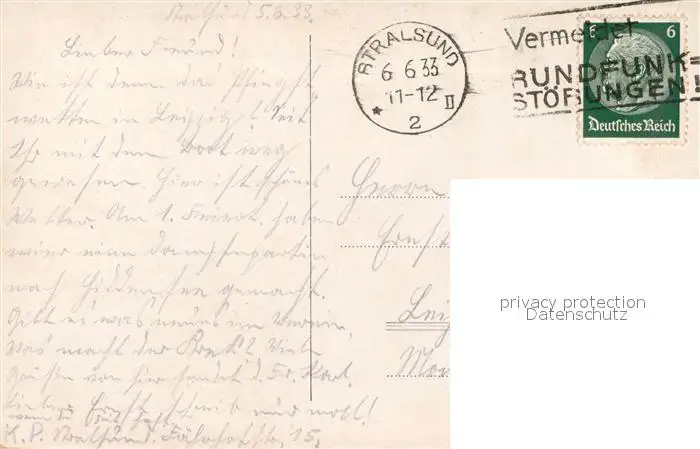 Stralsund 5.6.33.
Lieber Freund!
Wie ist denn das Pfingst
wetter in Leipzig? Seit
Ihr mit dem Boot weg
gewesen. Hier ist schönes
Wetter. Am 1. Feiert. haben
wir eine Dampferpartie
nach Hiddensee gemacht.
Gibt es was neues im Verein,
Was macht der Viele
Grüße von hier sendet d. Fr. Kurt.
Lieber Ernst schreib mal!
Stralsund. 15.
STRALSUND
6.6.33
11-12 II
2
Vermeidet
RUNDFUNK=
STÖRUNGEN!
6 6
Deutsches Reich
Herrn
Ernst
Lei
privacy protection
Datenschutz